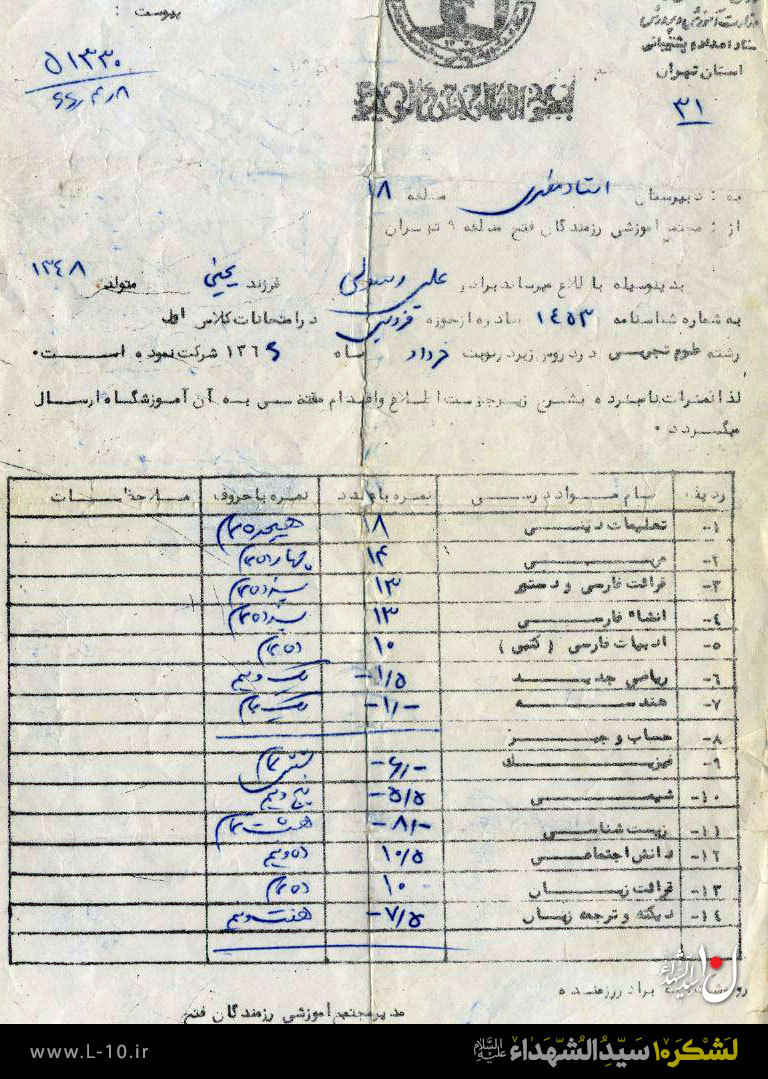 پیوست :
وزارت آموزش و پرورش
ستاد امداد و پشتیبانی
استان تهران
۵۱۳۳۰
۶۶٫۴٫۸
۳۱
به : دبیرستان استاد مطهری منطقه ۱۸
از : مجتمع آموزشی رزمندگان فتح منطقه ۹ تهران
بدینوسیله با طلاع میرساند برادر علی رسولی فرزند یحیی متولد ۱۳۴۸
به شماره شناسنامه ۱۴۵۳ صادره از حوزه قزوین در امتحانات کلاس اول
رشته علوم تجربی در دروس زیر در نوبت خرداد ماه ۱۳۶۶ شرکت نموده است .
لذا نمرات نامبرده بشرح زیر جهت اطلاع و اقدام مقتضی به آن آموزشگاه ارسال
میگردد .
ردیف نام مواد درسی نمره با عدد نمره با حروف ملاحظات
۱- تعلیمات دینی ۱۸ هیجده تمام
۲- عربی ۱۴ چهارده تمام
۳- قرائت فارسی و دستور ۱۳ سیزده تمام
۴- انشاء فارسی ۱۳ سیزده تمام
۵- ادبیات فارسی ( کتبی ) ۱۰ ده تمام
۶- ریاضی جدید ۱/۵- یک و نیم
۷- هندسه -/۱- یک تمام
۸- حساب و جبر
۹- فیزیک -/۶- شش تمام
۱۰- شیمی ۵/۵- پنج و نیم
۱۱- زیست شناسی -/۸- هشت تمام
۱۲- دانش اجتماعی ۱۰/۵ ده و نیم
۱۳- قرائت زبان ۱۰ ده تمام
۱۴- دیکته و ترجمه زبان ۷/۵- هفت و نیم
رونوشت برادر رزمنده
مدیر مجتمع آموزشی رزمندگان فتح
www.L-10.ir
لشکر۱۰ سیّدالشّهداء علیه‌السلام